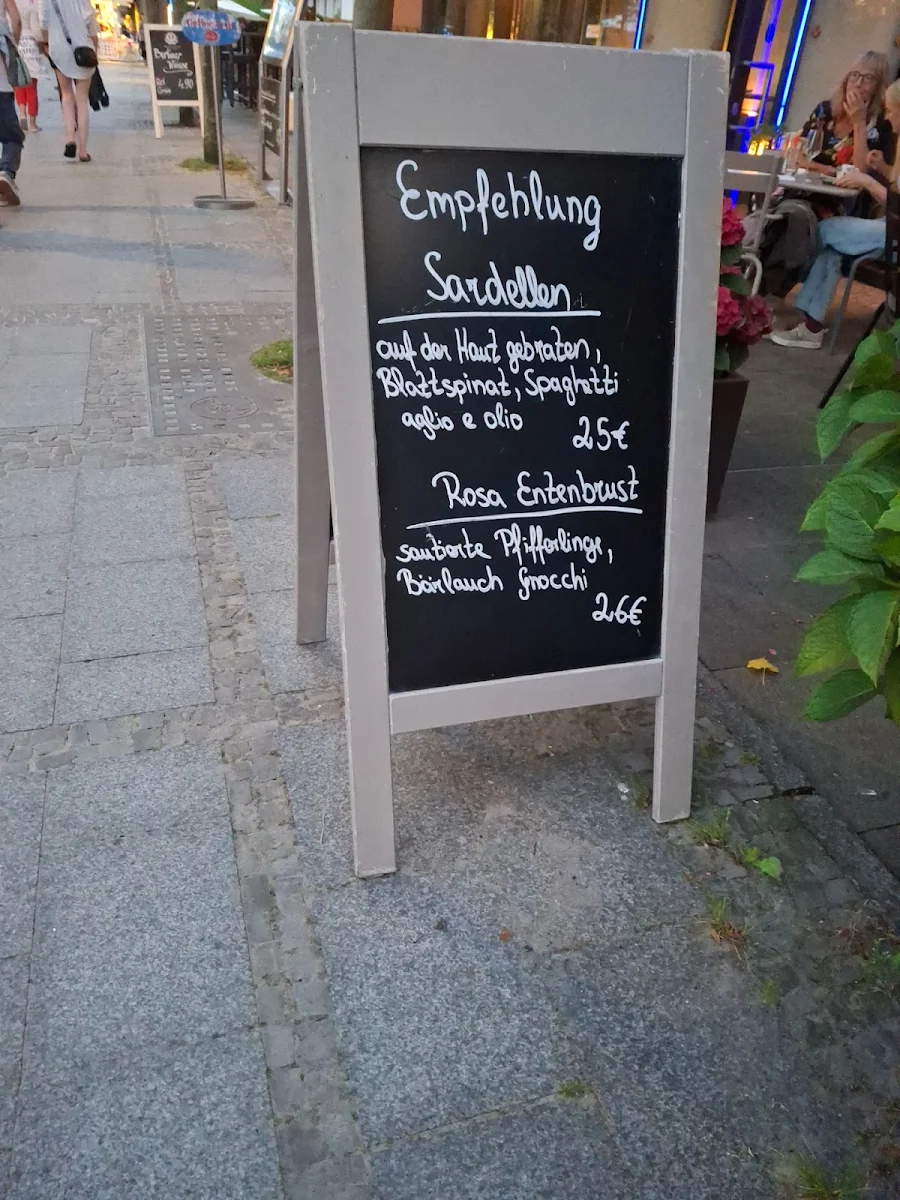 Empfehlung
Sardellen
auf der Haut gebraten,
Blattspinat, Spaghetti
aglio e olio
25€
Rosa Entenbrust
sautierte Pfifferlinge,
Bärlauch Gnocchi
26€
Berliner
Weisse
4,90